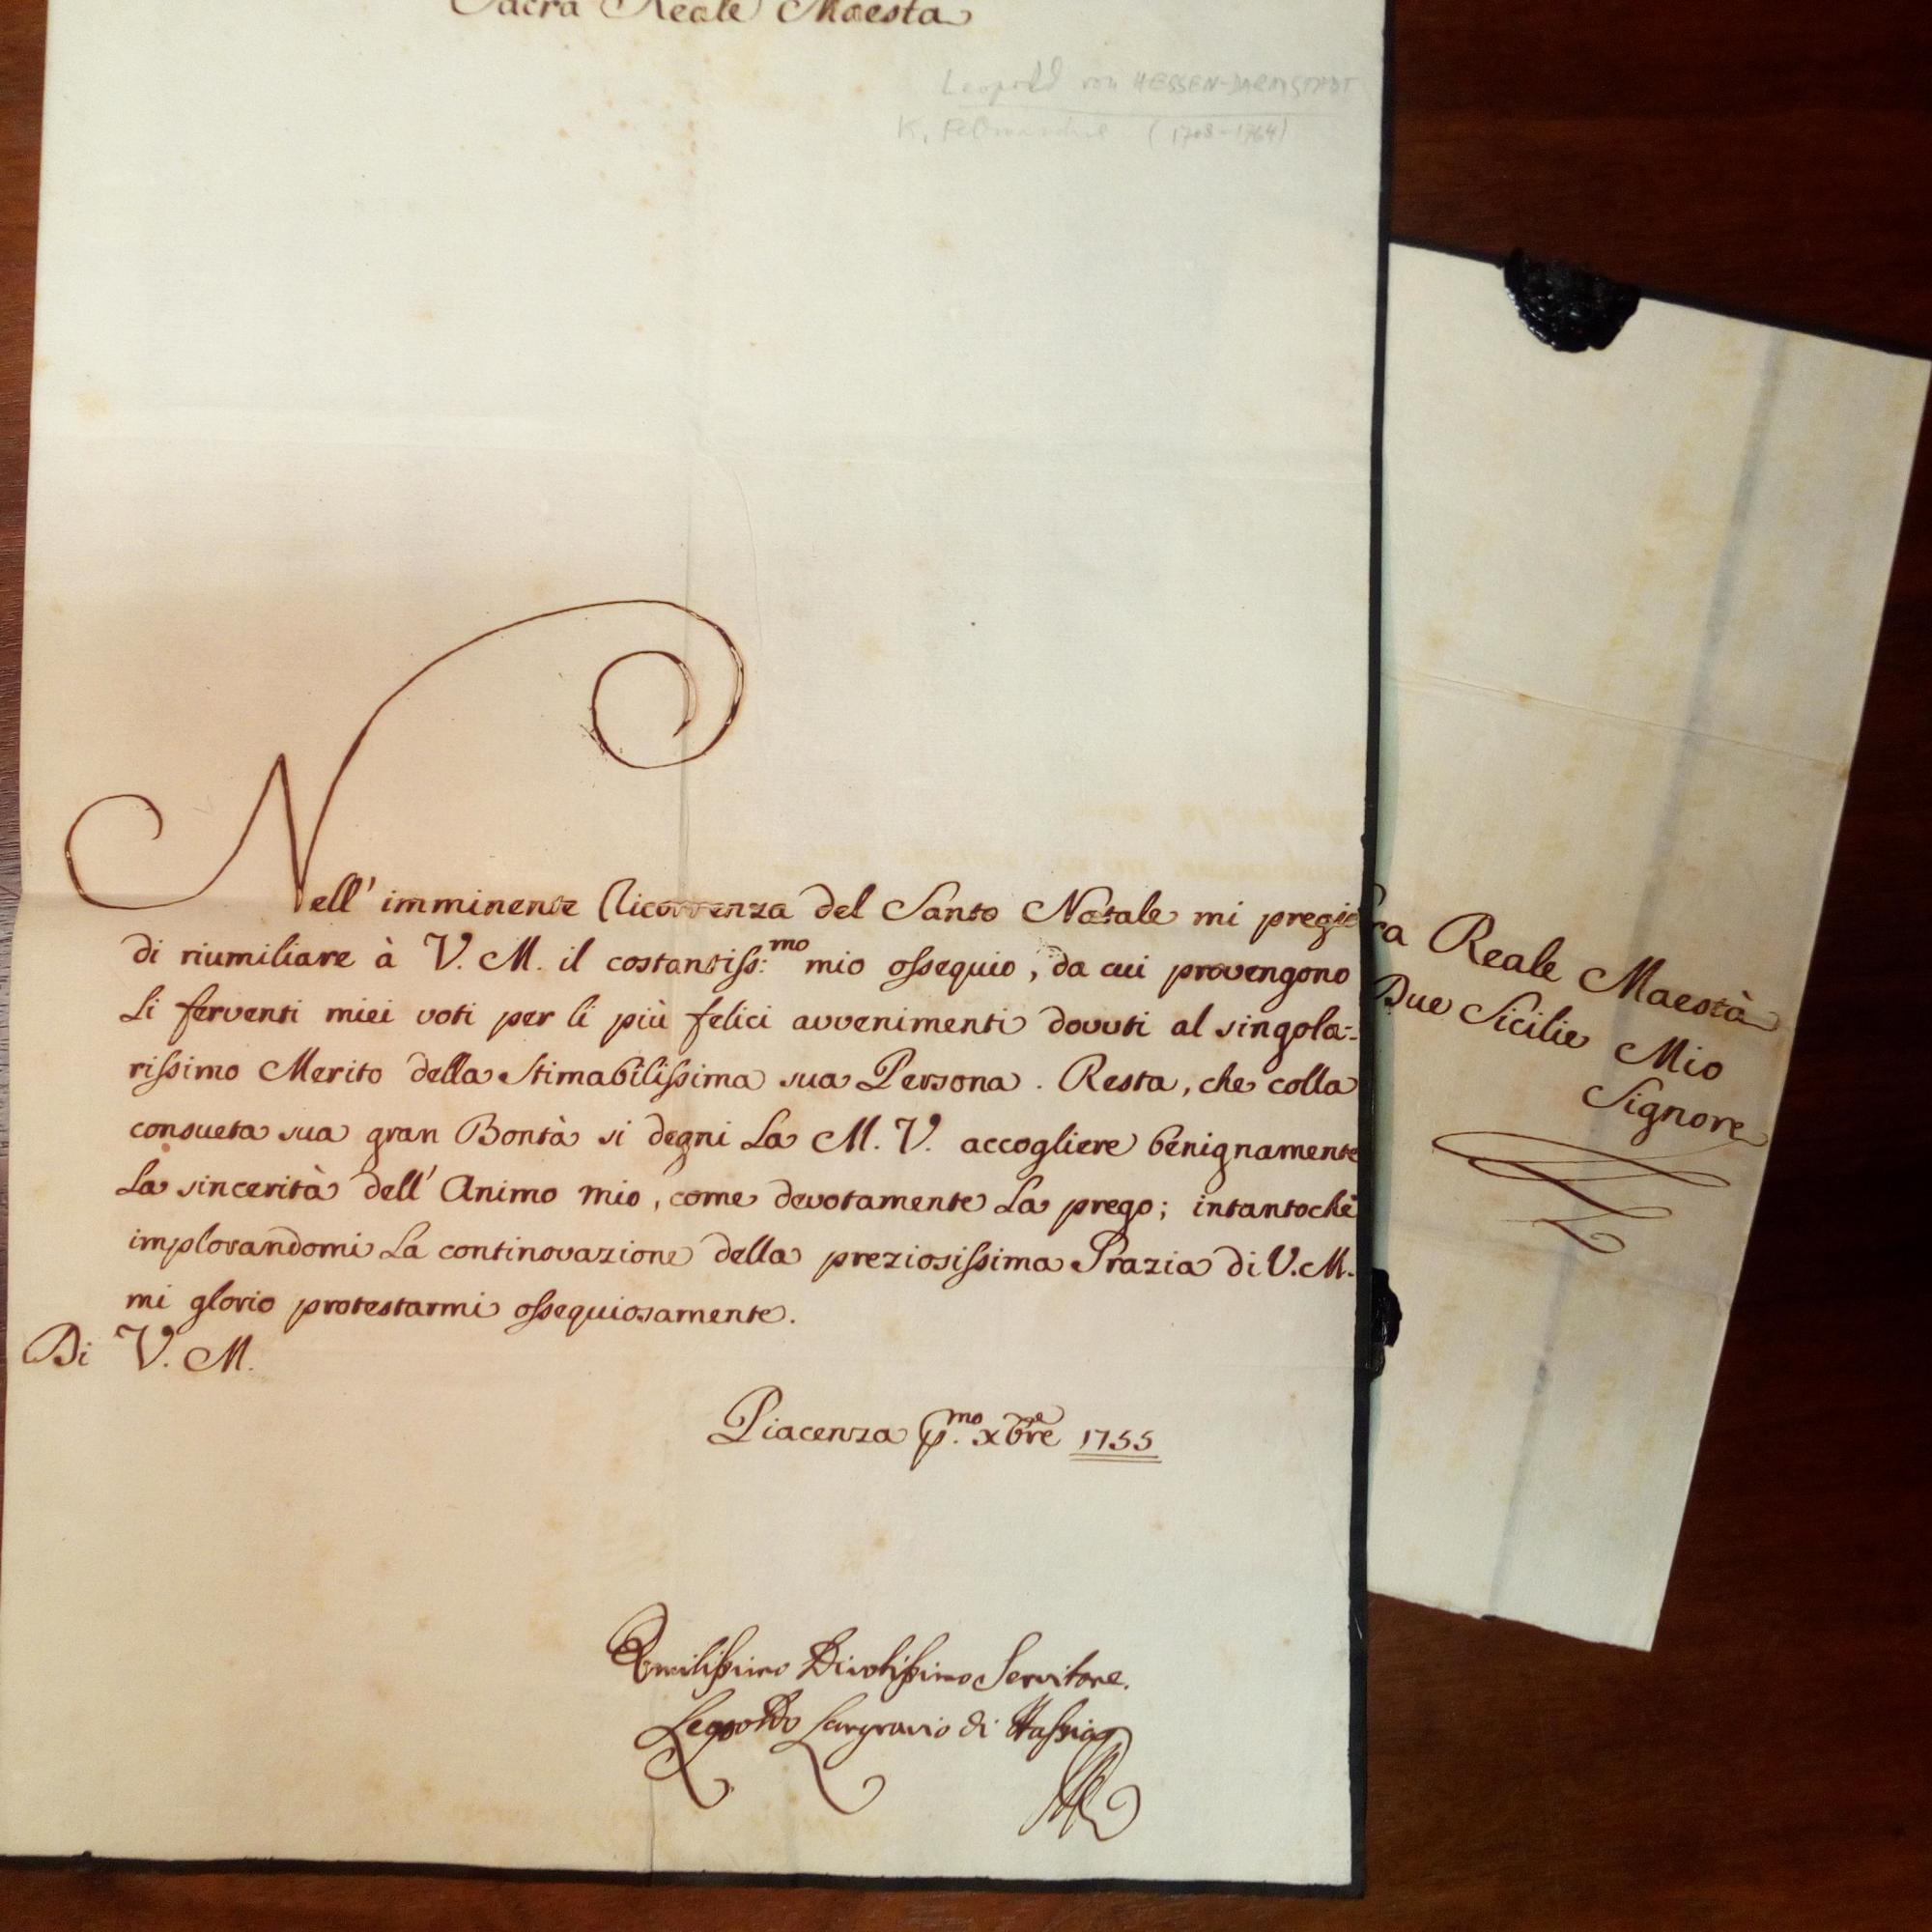 Sacra Reale Maestà
Leopold von HESSEN-DARMSTADT
K. (1708-1764)
Nell' imminente Ricorrenza del Santo Natale mi pregio
di riumiliare à V. M. il costantiss:mo mio ossequio, da cui provengono
li ferventi miei voti per li più felici avvenimenti dovuti al singola=
rissimo Merito della Stimabilissima sua Persona. Resta, che colla
consueta sua gran Bontà si degni La M. V. accogliere benignamente
La sincerità dell' Animo mio, come devotamente La prego; intantochè
implorandomi La continovazione della preziosissima Grazia di V. M.
mi glorio protestarmi ossequiosamente.
Di V. M.
Piacenza p.mo xbre 1755
Umilissimo Divotissimo Servitore.
Leopoldo Langravio di Hassia
ra Reale Maestà
Due Sicilie Mio
Signore